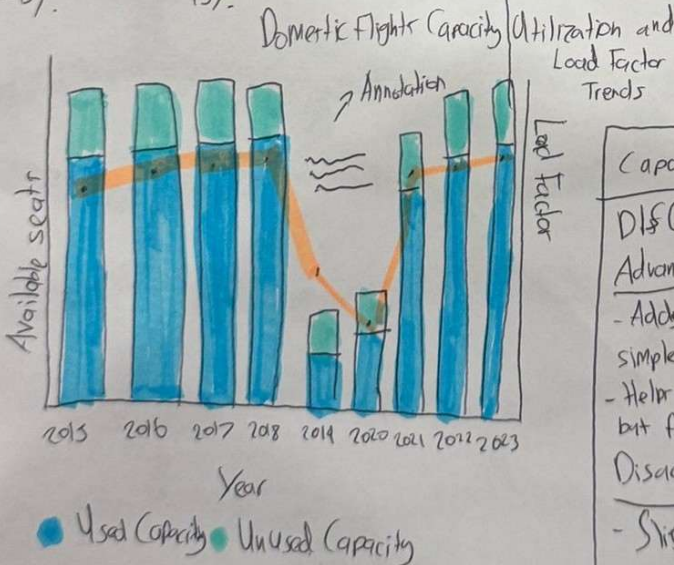 Domestic Flights Capacity Utilization and
Load Factor
Trends
Annotation
Available seats
Load Factor
2015 2016 2017 2018 2019 2020 2021 2022 2023
Year
Used Capacity Unused Capacity
Capa
DIS
Advan
- Add
simple
- Helps
but f
Disa
- Sli